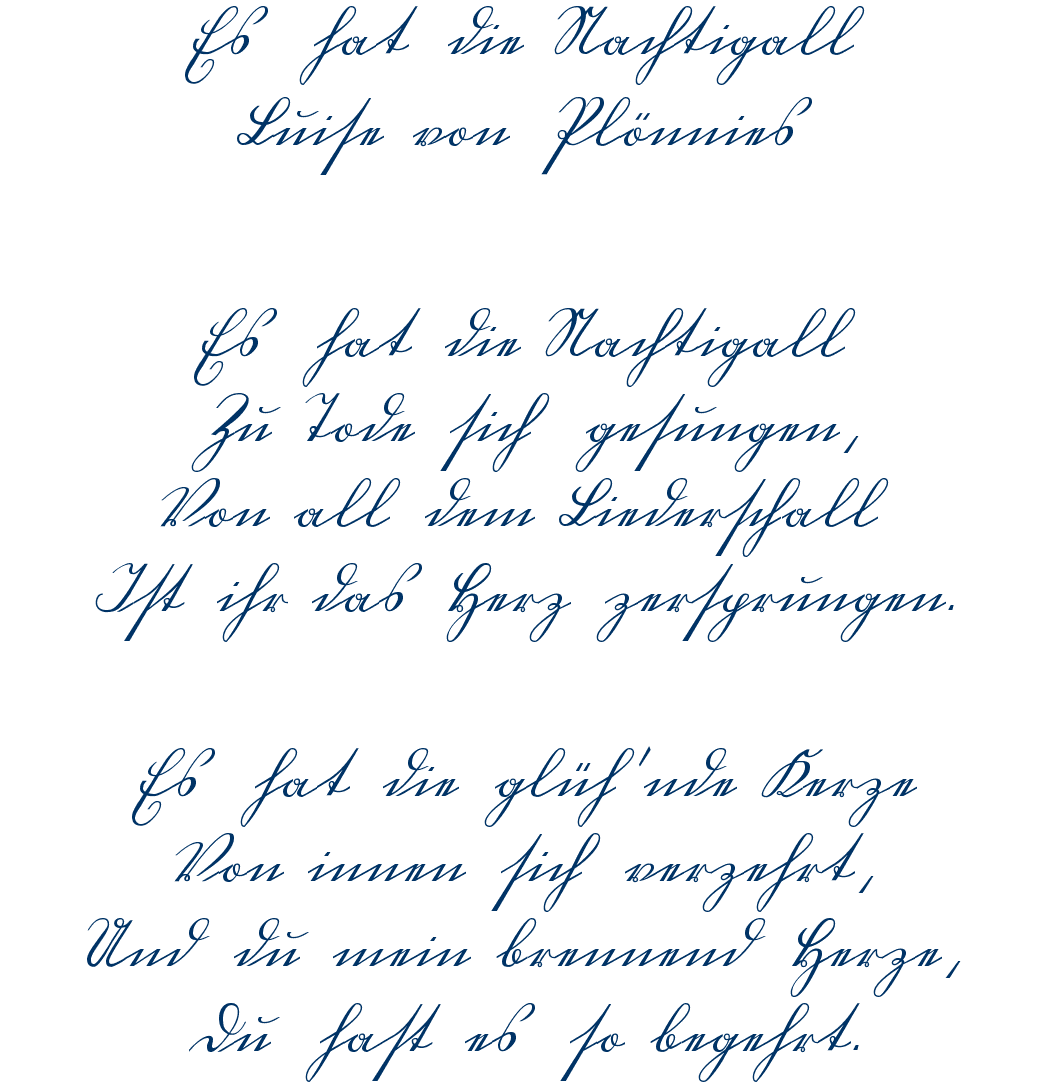 Es hat die Nachtigall
Luise von Plönnies
Es hat die Nachtigall
Zu Tode sich gesungen,
Von all dem Liederschall
Ist ihr das Herz zersprungen.
Es hat die glüh'nde Kerze
Von innen sich verzehrt,
Und du mein brennend Herze,
Du hast es so begehrt.